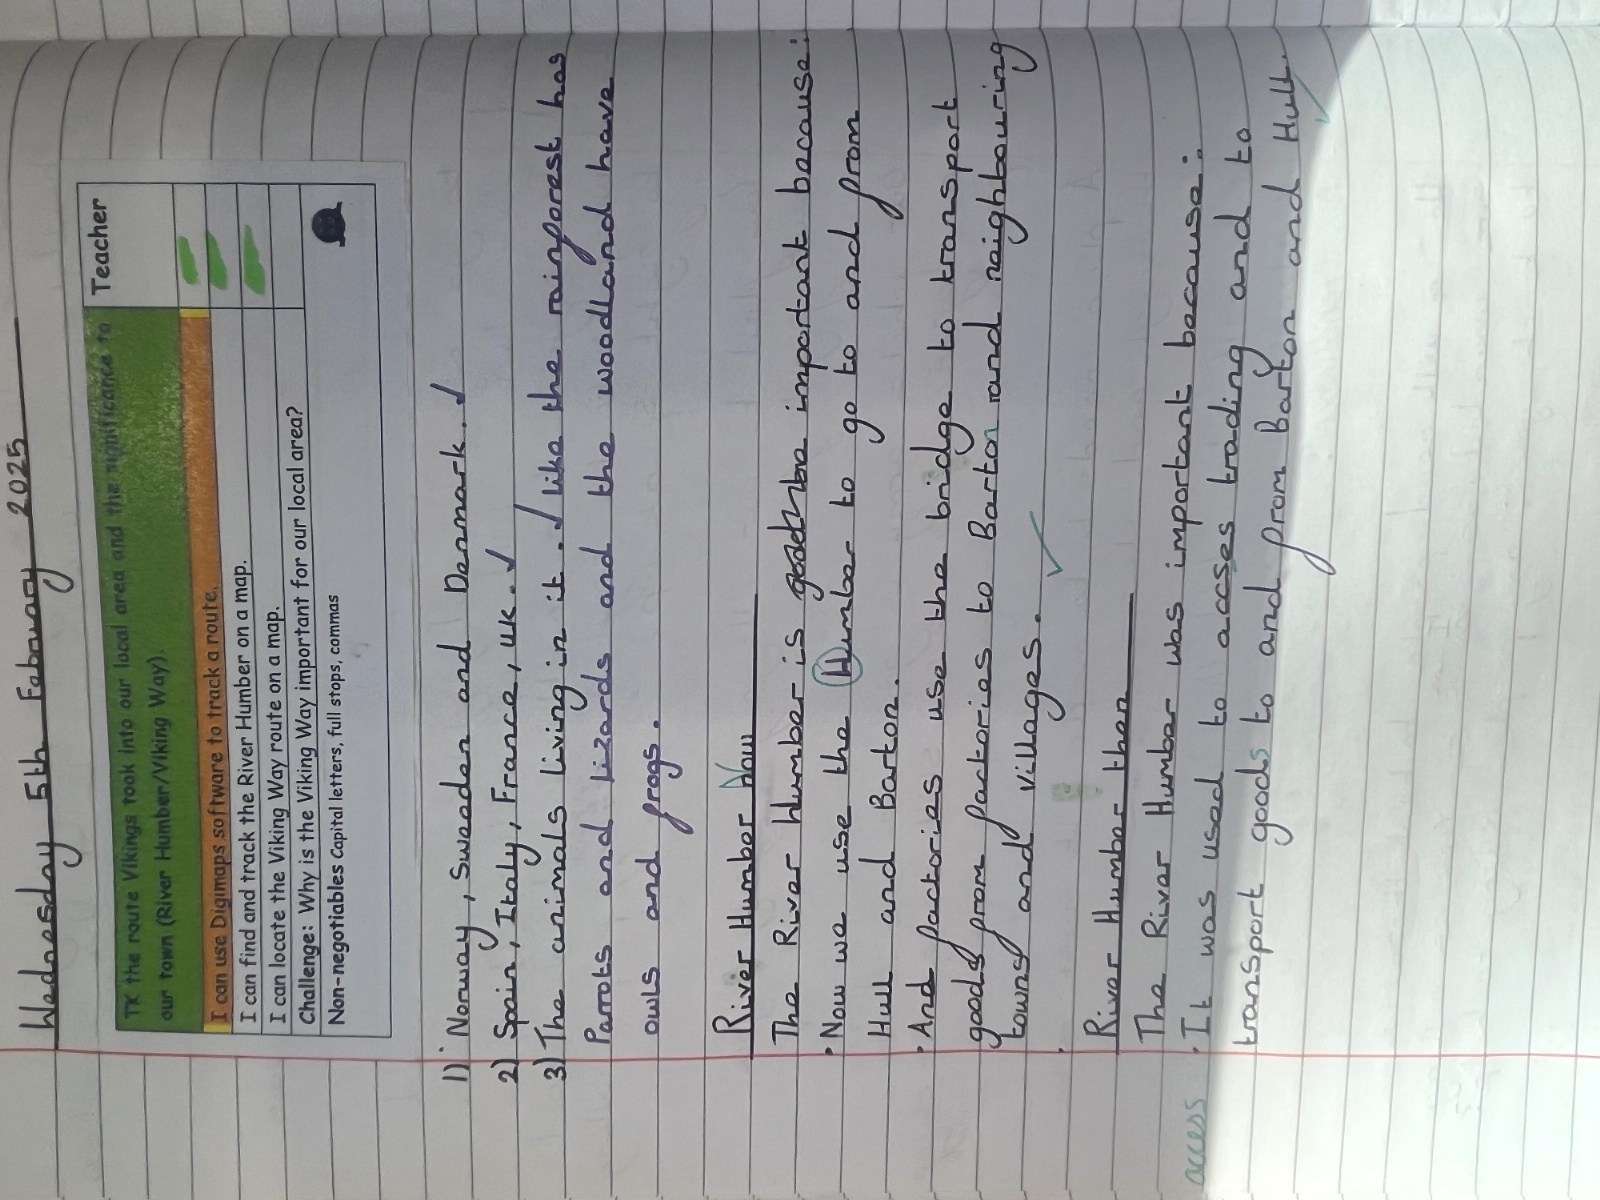 Wednesday 5th February 2025
TK the route Vikings took into our local area and the significance to
our town (River Humber/Viking Way).
Teacher
I can use Digimaps software to track a route.
I can find and track the River Humber on a map.
I can locate the Viking Way route on a map.
Challenge: Why is the Viking Way important for our local area?
Non-negotiables Capital letters, full stops, commas
1) Norway, Sweeden and Denmark.
2) Spain, Italy, France, UK.
3) The animals living in it. like the rainforest has
Parrots and lizards and the woodland have
owls and frogs.
River Humber Now
The River Humber is important because:
• Now we use the Humber to go to and from
Hull and Barton.
• And factories use the bridge to transport
goods from factories to Barton and neighbouring
towns and villages.
River Humber then
The River Humber was important because:
access
• It was used to acces trading and to
transport goods to and from Barton and Hull.